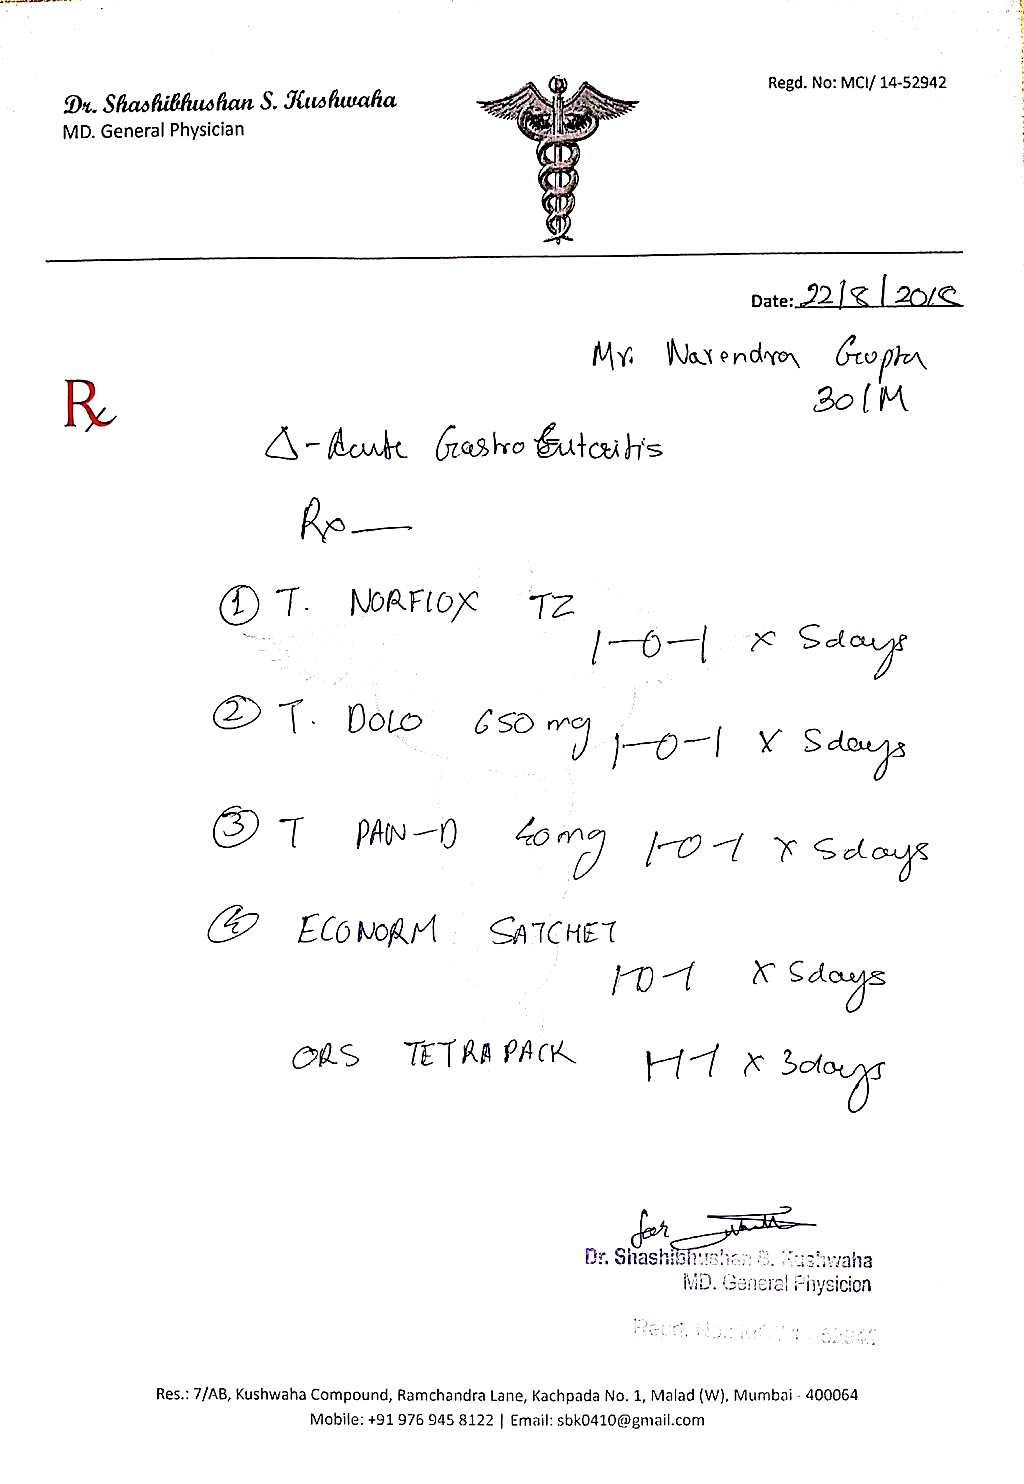 Regd. No: MCI/ 14-52942
Dr. Shashibhushan S. Kushwaha
MD. General Physician
Date: 22/8/2018
Mr. Narendra Gupta
30/M
Rx
Δ-Acute Gastro Enteritis
Rx—
① T. NORFLOX TZ
1-0-1 x 5days
② T. DOLO 650 mg 1-0-1 x 5days
③ T PAN-D 40mg 1-0-1 x 5days
④ ECONORM SATCHET
1-0-1 x 5days
ORS TETRAPACK 1-1-1 x 3days
for
Dr. Shashibhushan S. Kushwaha
MD. General Physicion
Regd. No.: MCI/ 14-52942
Res.: 7/AB, Kushwaha Compound, Ramchandra Lane, Kachpada No. 1, Malad (W), Mumbai - 400064
Mobile: +91 976 945 8122 | Email: sbk0410@gmail.com